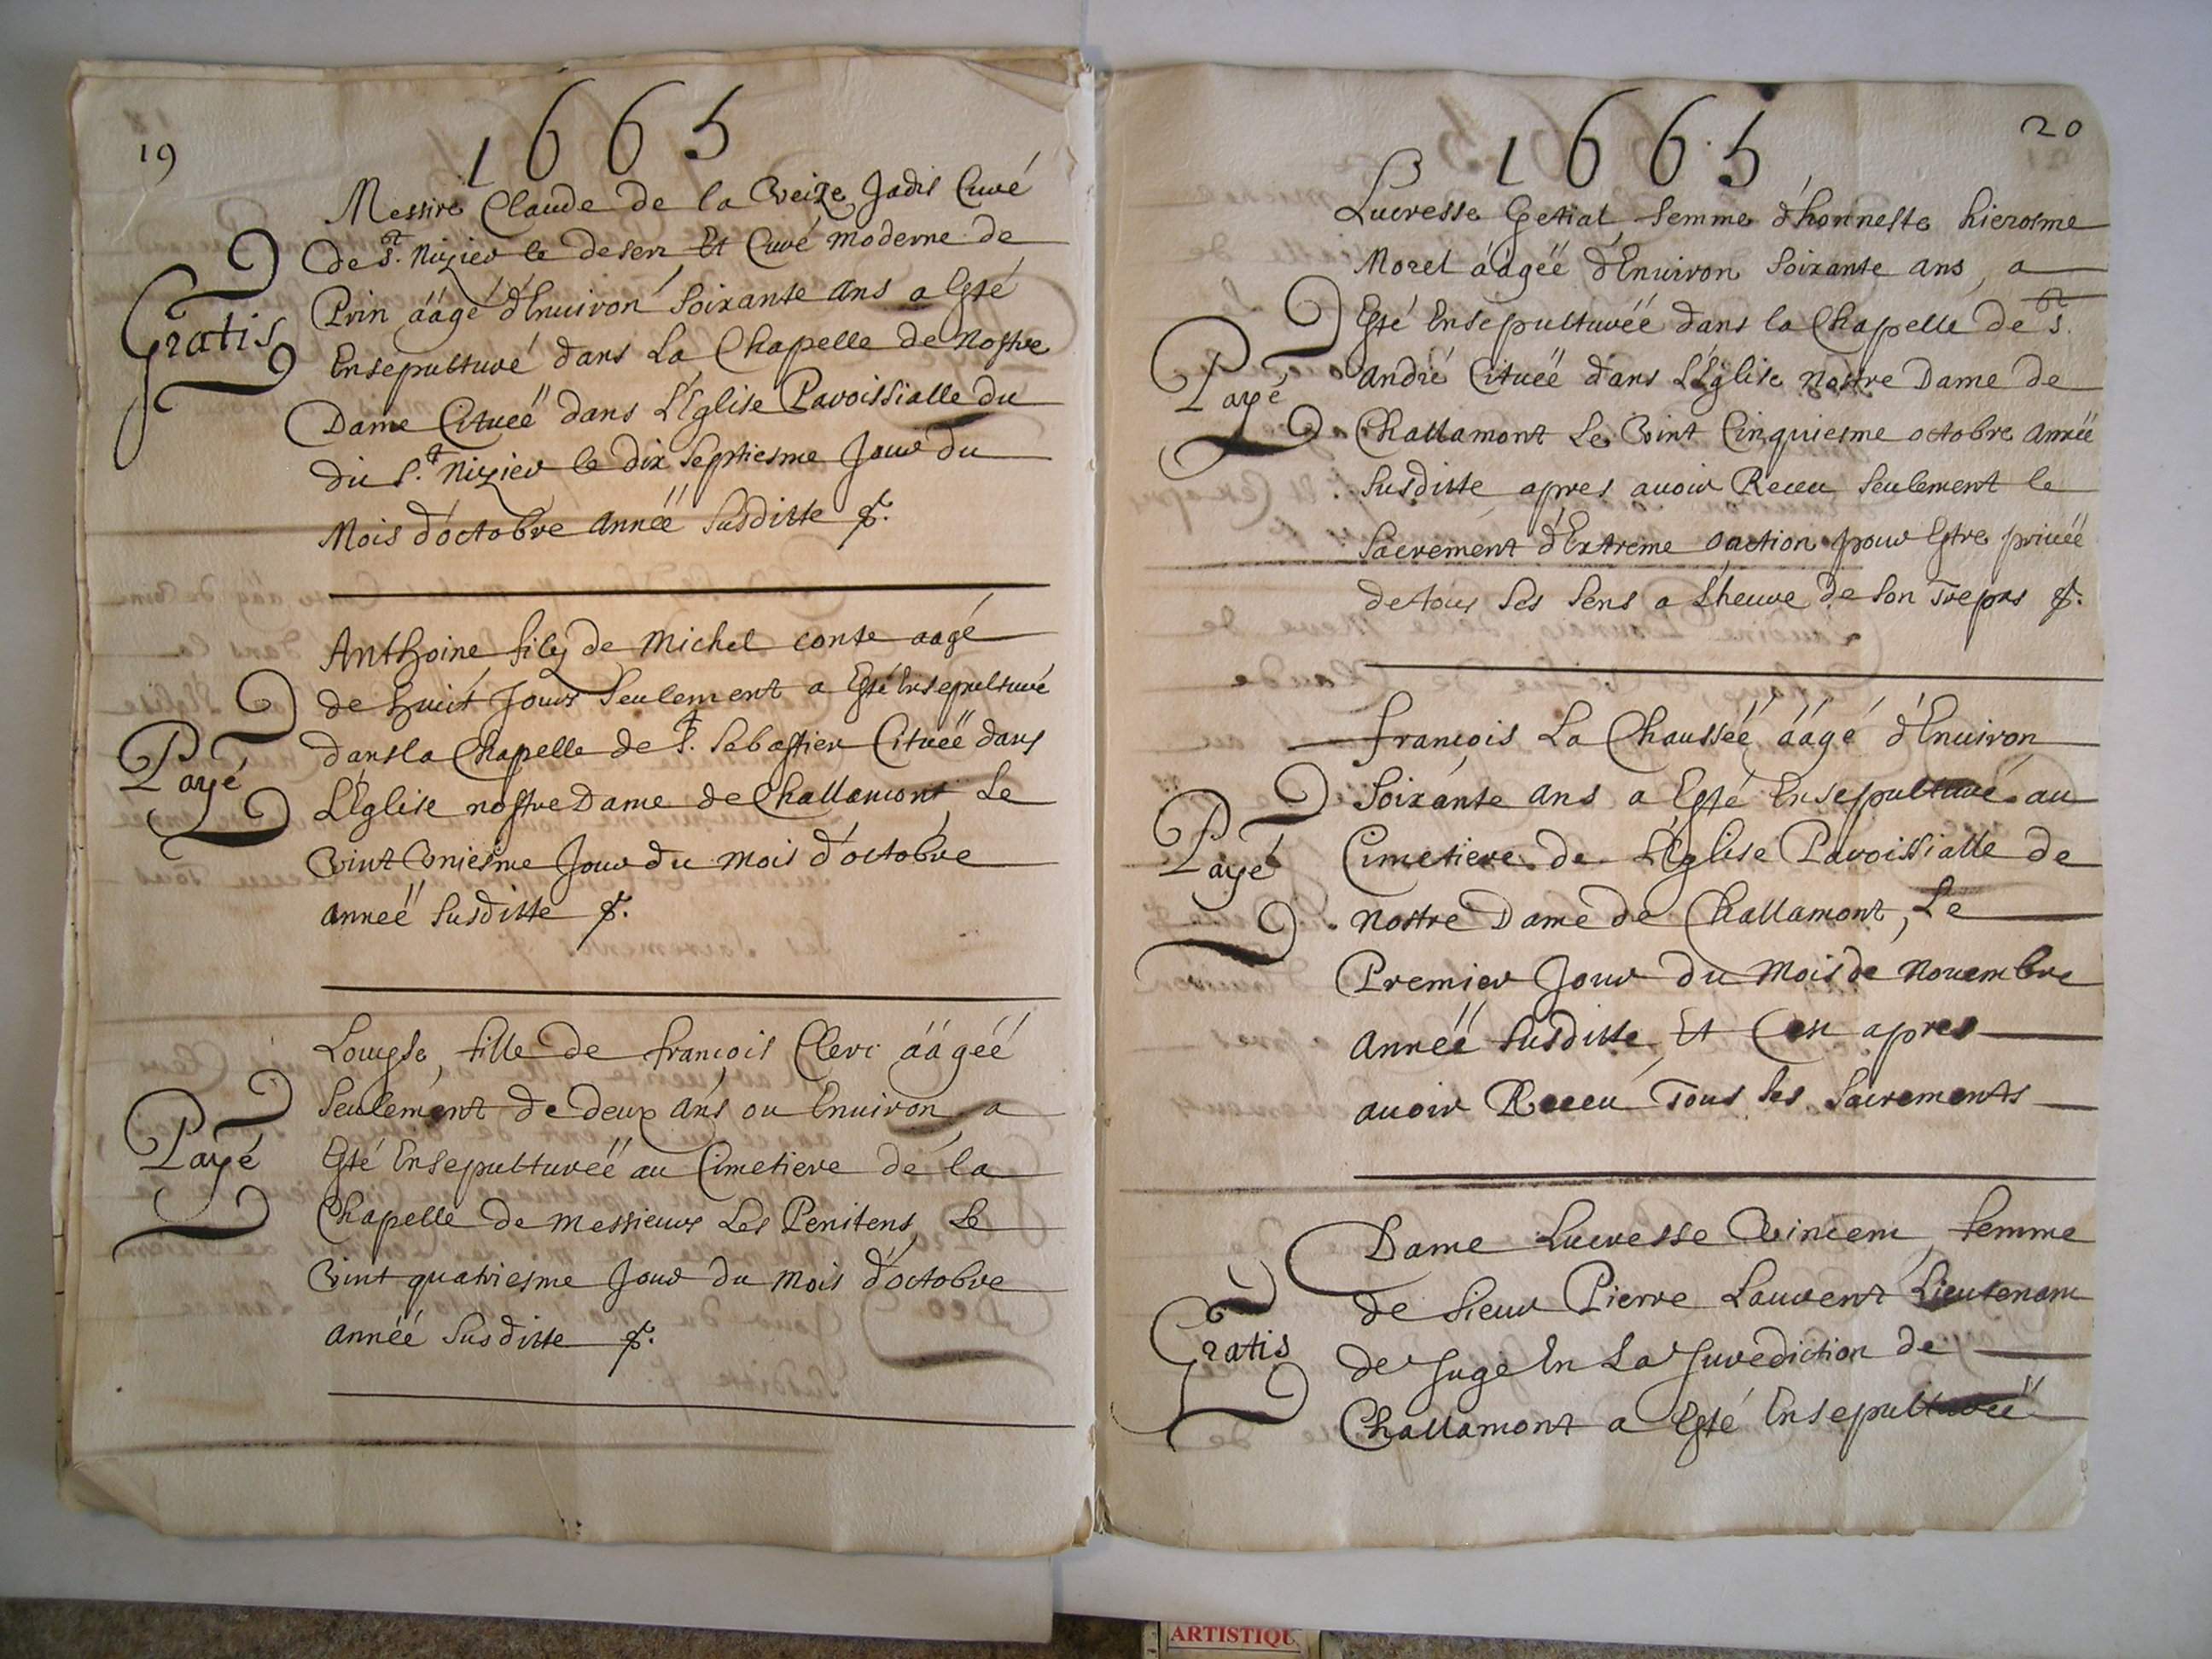 19
1665
Messire Claude de la Veize Jadis Curé
de St. Nizier le desert Et Curé moderne de
Prin ââgé d'Enuiron soixante ans a Esté
Ensepulturé dans La Chapelle de Nostre
Dame Cituéë dans L'Eglise Paroissialle du
dit St. Nizier le dix septiesme Jour du
Mois d'octobre annéë susditte &.
Gratis
Anthoine fils de Michel conte aagé
de huict Jours seulement a Esté Ensepulturé
dans la Chapelle de St. Sebastien Cituéë dans
L'Eglise nostre Dame de Challamont Le
Vint Vniesme Jour du mois d'octobre
annéë susditte &.
Payé
Louyse, fille de françois Clerc ââgéë
seulement de deux ans ou Enuiron, a
Esté Ensepulturéë au Cimetiere de la
Chapelle de messieurs Les Penitens, Le
Vint quatriesme Jour du mois d'octobre
annéë susditte &.
Payé
20
1665
Lucresse Getiat, femme d'honneste hierosme
Morel ââgéë d'Enuiron soixante ans, a
Esté Ensepulturéë dans la Chapelle de St.
André Cituéë dans L'Eglise nostre Dame de
Challamont Le Vint Cinquiesme octobre annéë
susditte, apres auoir Receu seulement le
sacrement d'Extreme onction pour Estre priuéë
de tous ses sens a L'heure de son Trepas &.
Payé
françois La Chausséë ââgé d'Enuiron
soixante ans a Esté Ensepulturé au
Cimetiere de L'Eglise Paroissialle de
nostre Dame de Challamont, Le
Premier Jour du mois de nouembre
annéë susditte, Et Ce apres
auoir Receu Tous les sacrements
Payé
Dame Lucresse Vincent, femme
de sieur Pierre Laurent Lieutenant
de Juge En La Jurediction de
Challamont a Esté Ensepulturéë
Gratis
ARTISTIQU